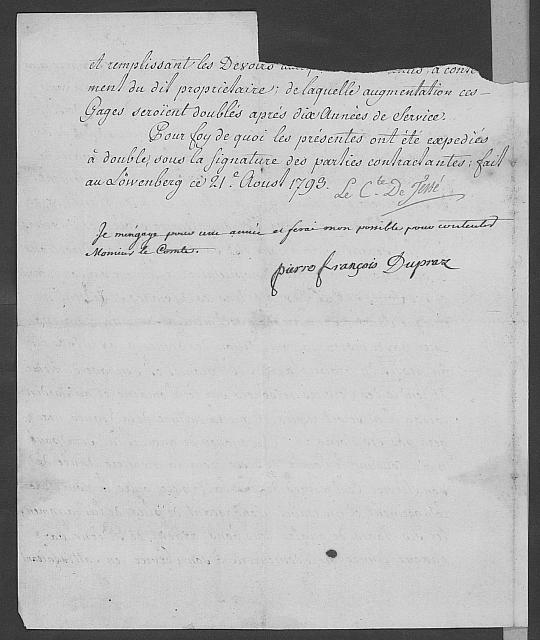 et remplissant les Devoirs
ment du dit propriétaire; de laquelle augmentation ces
Gages seroient doublés après dix Années de Service.
Pour foy de quoi les présentes ont été expediés
à double, sous la signature des parties contractantes; fait
au Löwenberg ce 21.e Aoust 1793. Le Cte. De Tessé
Je m'engage pour une année et ferai mon possible pour contenter
Monsieur le Comte.
pierre françois Dupraz